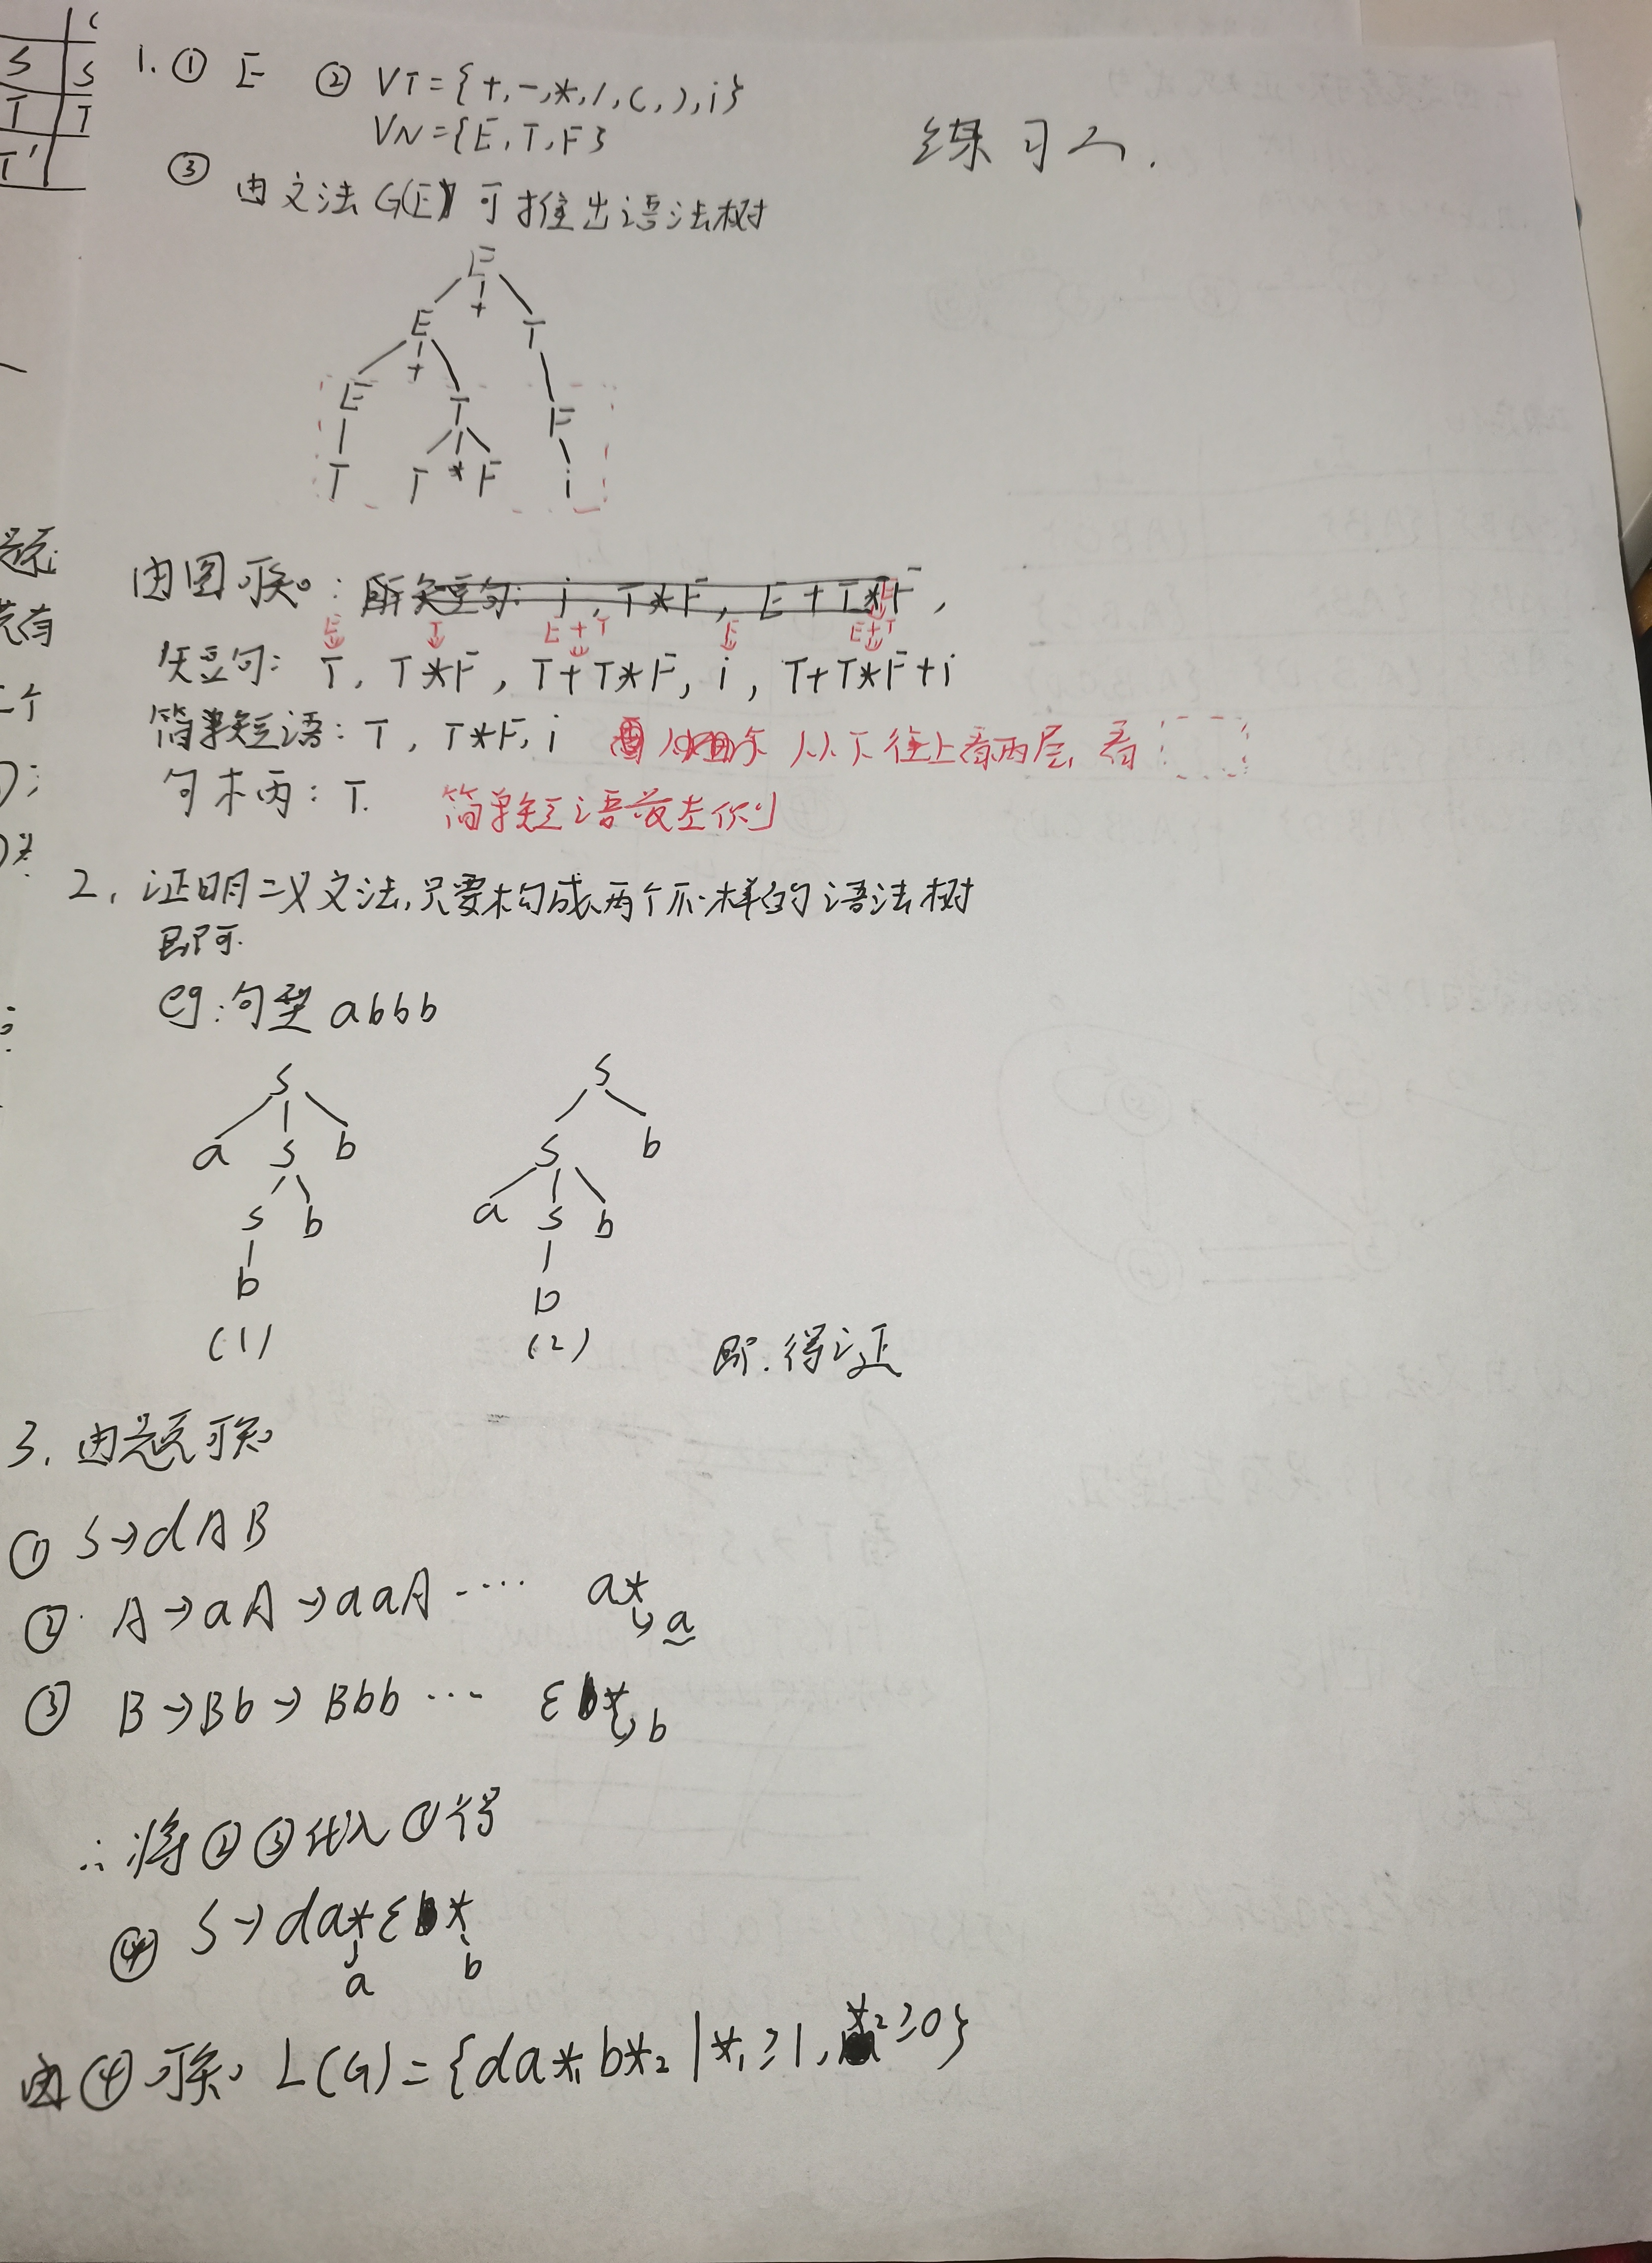 S
S
T
T
T'
1. ① E ② VT={+,-,*,/,(,),i}
VN={E,T,F}
练习二.
③ 由文法G(E)可推出语法树
E
+
E
T
+
E
T
F
T
T * F
i
由图可知: 所短句: i, T*F, E+T*F,
E T E+T F E+T
短句: T, T*F, T+T*F, i, T+T*F+i
简单短语: T, T*F, i 从下往上看两层, 看
句柄: T. 简单短语最左侧
2. 证明二义文法,只要构成两个不一样的语法树
即可.
eg:句型 abbb
S S
a S b S b
S b a S b
b b
(1) (2) 即.得证
3. 由题可知
① S→dAB
② A→aA→aaA ···· a*
a
③ B→Bb→Bbb ··· εb*
b
∴将②③代入①得
④ S→da*εb*
a b
由④可知 L(G)={da*₁b*₂|*₁≥1,*₂≥0}
题
有
个